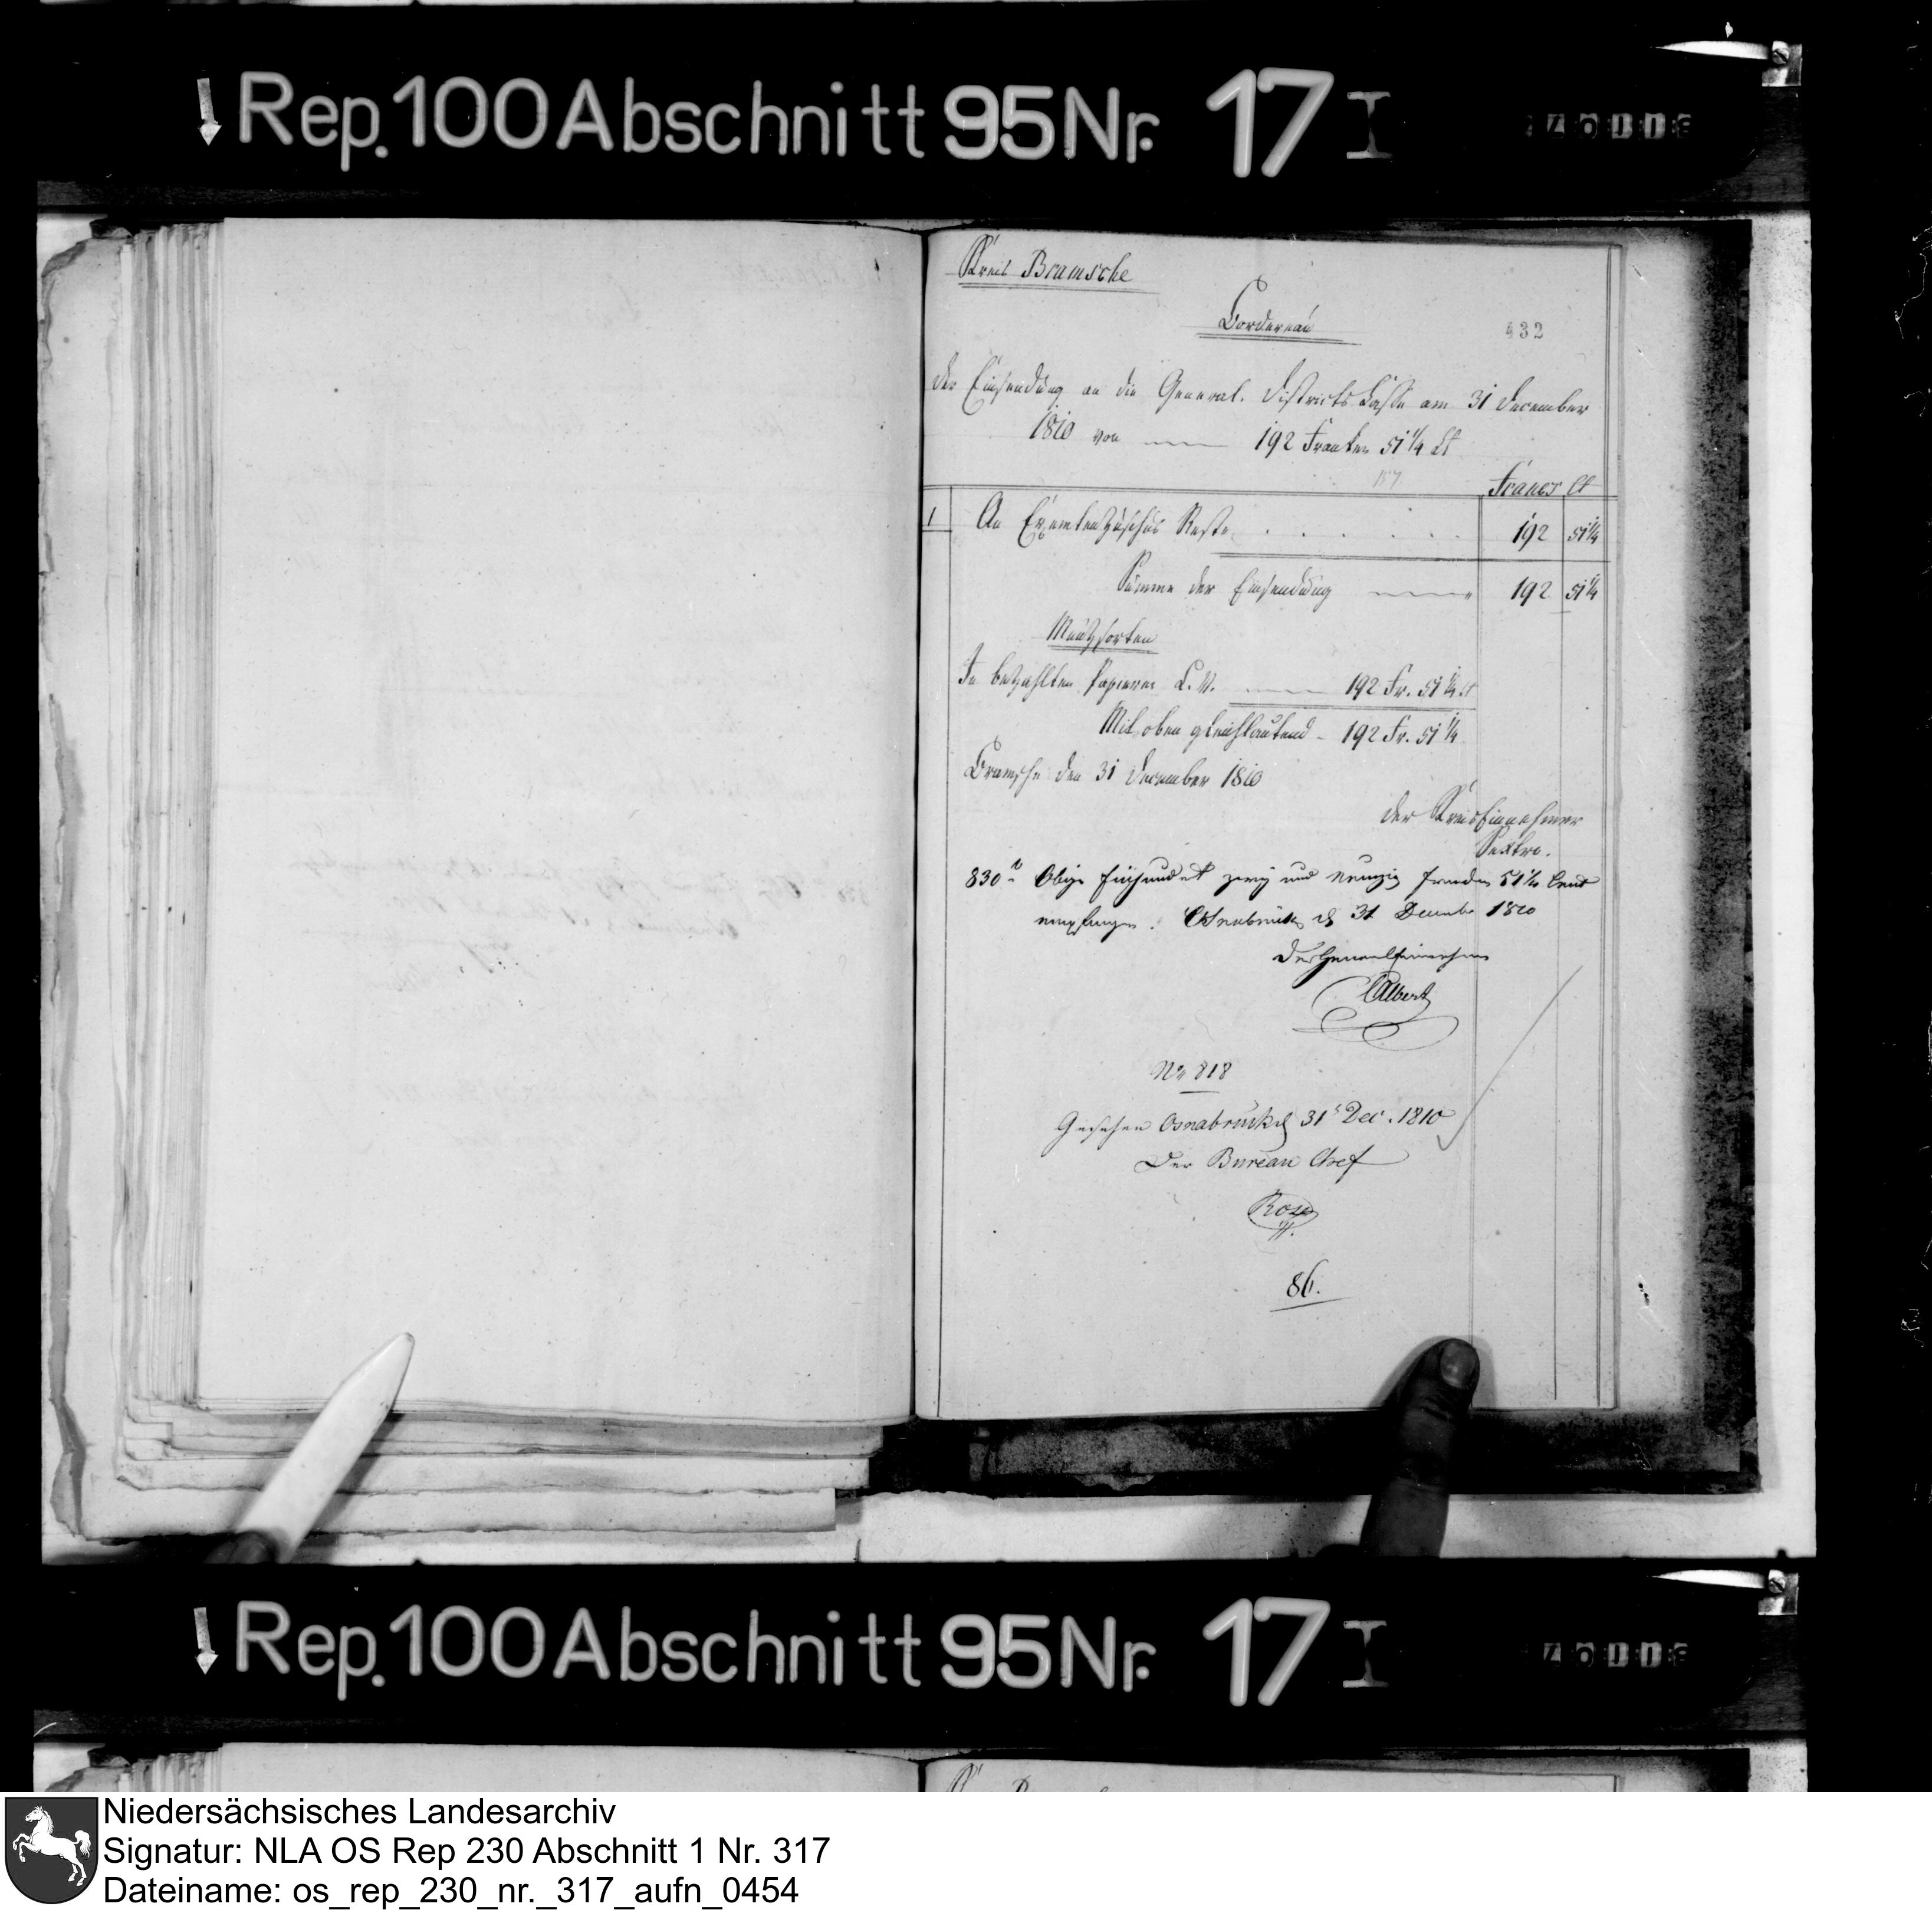 Rep. 100 Abschnitt 95 Nr. 17 I
Kreis Bramsche
Bordereau
432
der Einsendung an die General-Districts Casse am 31 December
1810 von 192 Franken 51 1/4 Ct
Francs Ct
1 An Exemtenzuschus Reste . . . . . . 192 51 1/4
Summe der Einsendung 192 51 1/4
Müntzsorten
In bezahlten Papieren 192 Fr. 51 1/4 Ct
Mit oben gleichlautend - 192 Fr. 51 1/4
Bramsche den 31 December 1810
der Kreis Einnehmer
Sextro.
830 Obige Einhundert zwey und neunzig Franken 51 1/4 Cent
empfangen. Osnabrück d 31 December 1810
Der General Einnehmer
Albert
No 818
Gesehen Osnabrück d 31 Dec. 1810
Der Bureau Chef
86.
Rep. 100 Abschnitt 95 Nr. 17 I
Niedersächsisches Landesarchiv
Signatur: NLA OS Rep 230 Abschnitt 1 Nr. 317
Dateiname: os_rep_230_nr._317_aufn_0454